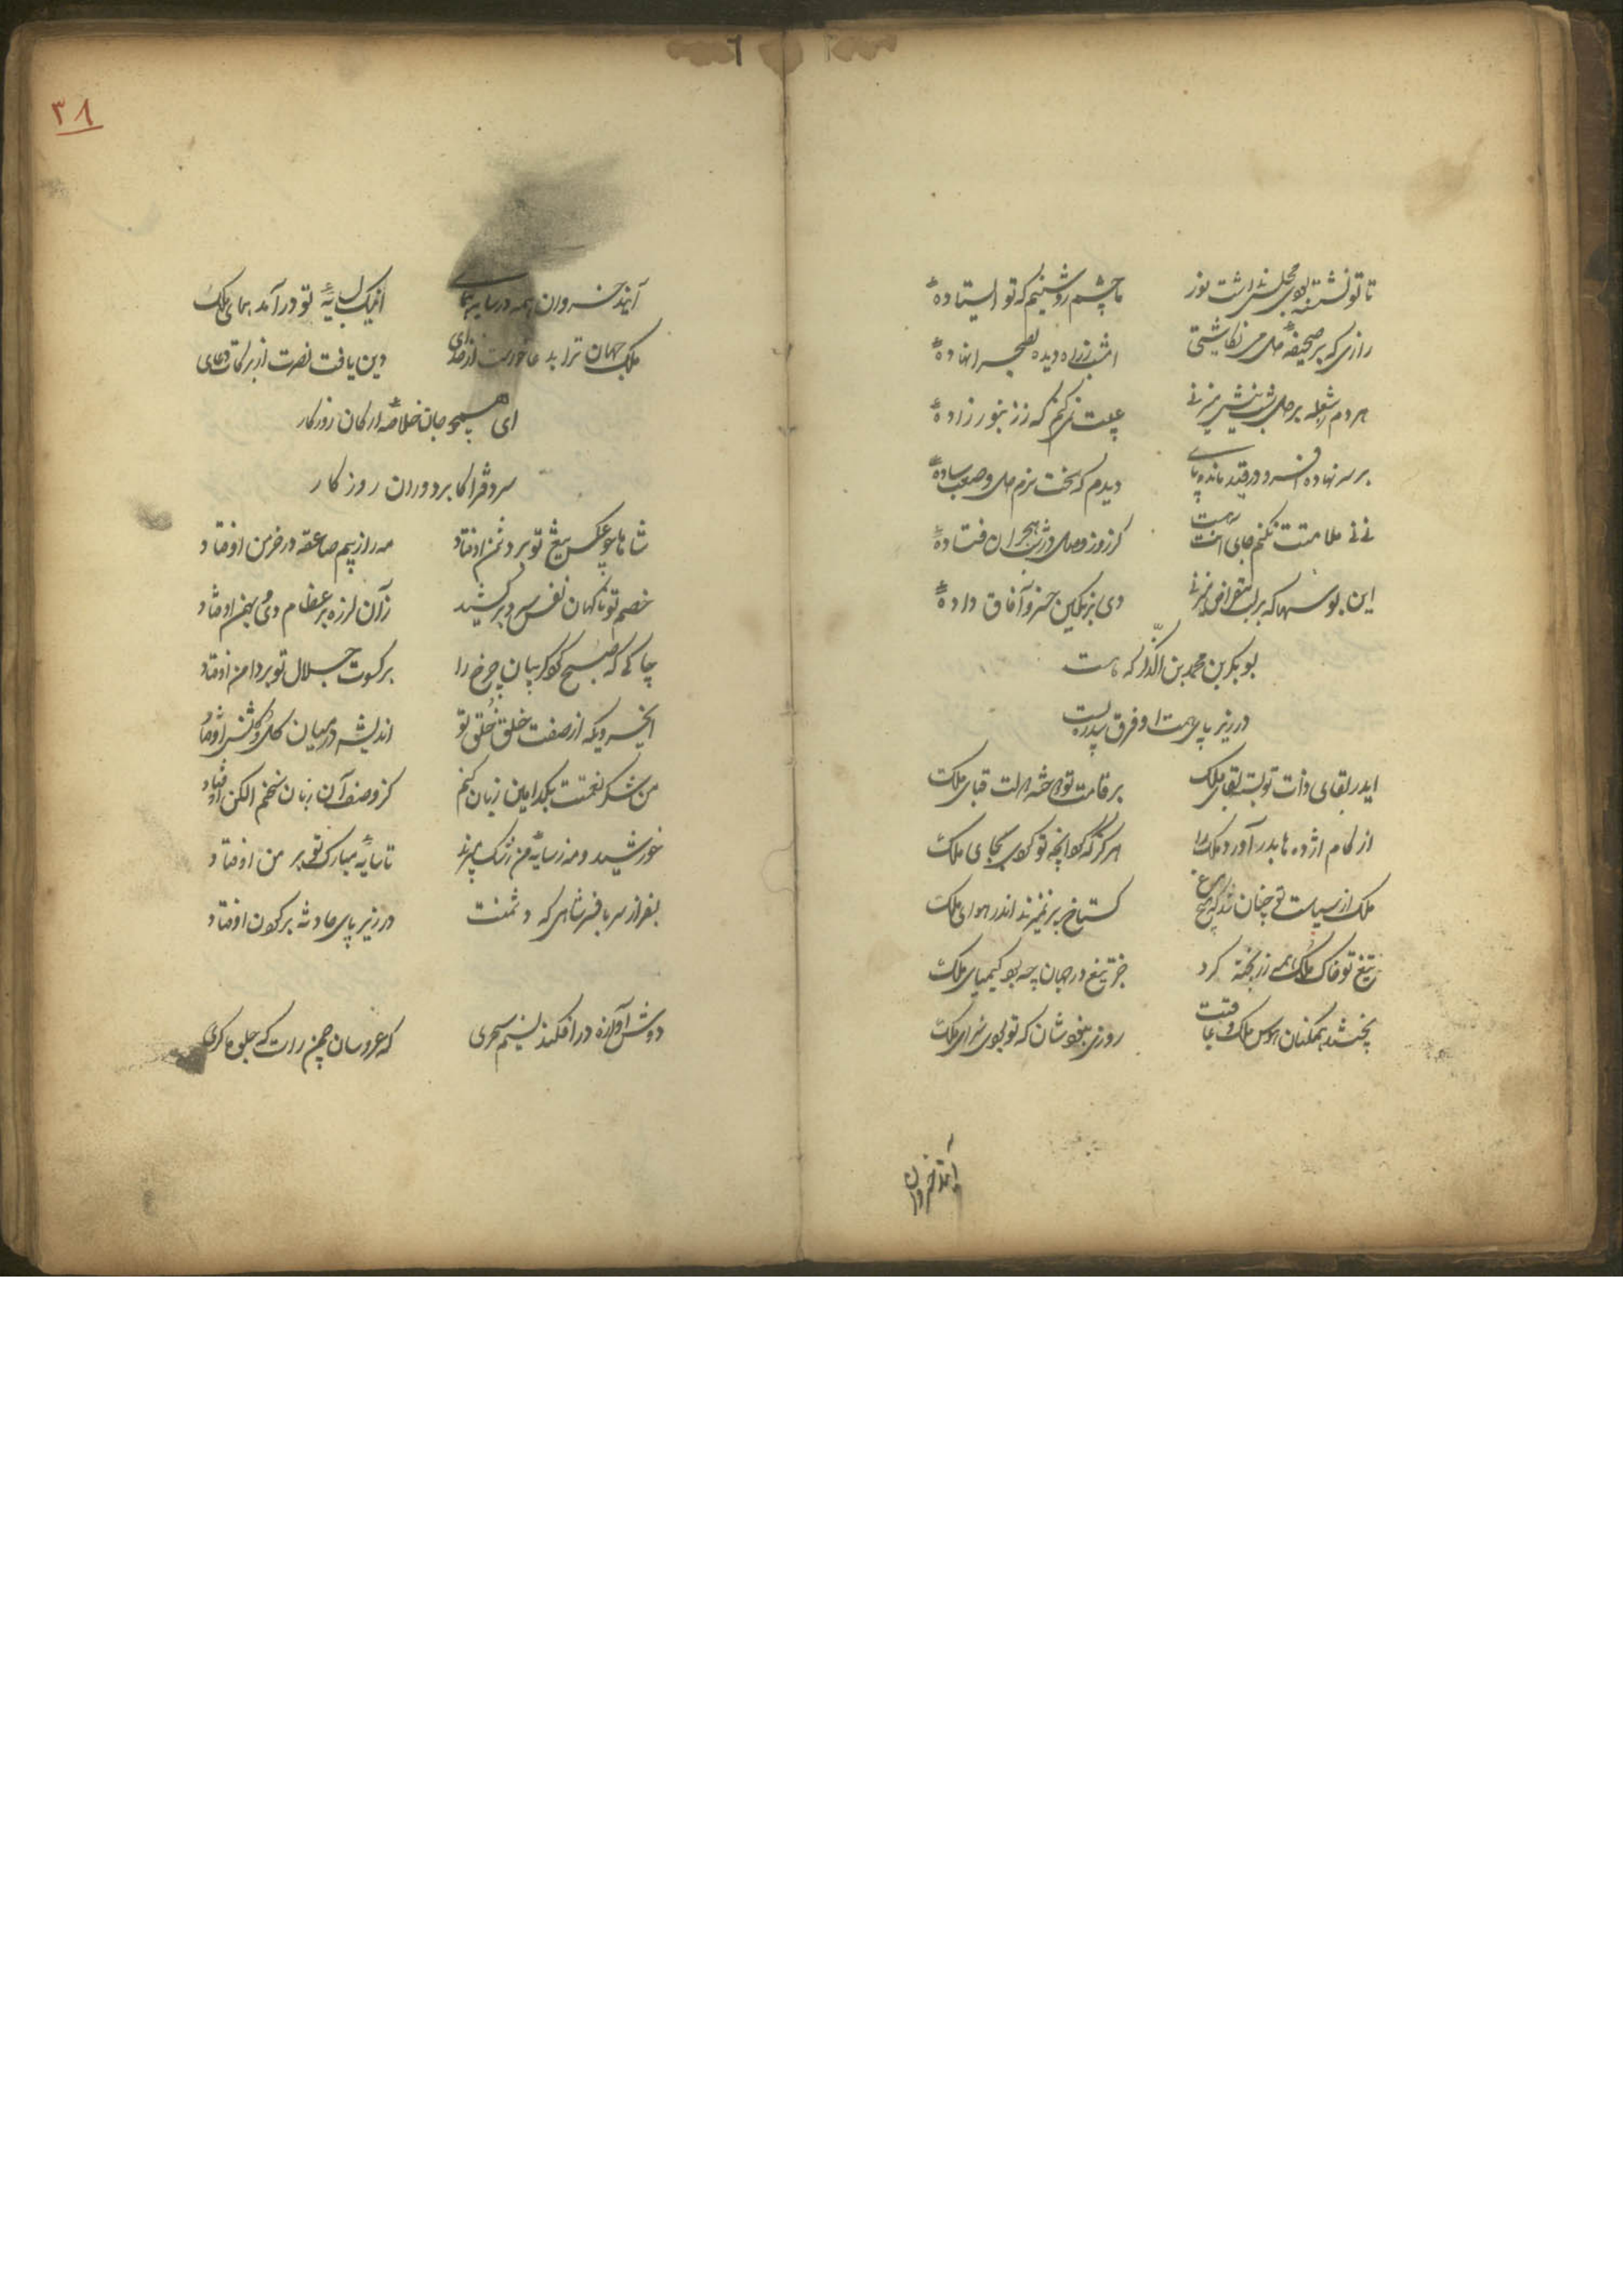 تا تو نشسته بودی مجلس نداشت نور
ما چشم روشنیم که تو ایستاده
رازی که بر صحیفه دل می نگاشتی
امشب ز راه دیده بصحرا نهاده
هر دم ز شعله بر دل شب نیش میزنی
عیبت نمی کنم که ز زنبور زاده
بر سر نهاده افسر و در قید مانده پای
دیدم که سخت نرم دل و صعب ساده
نی نی ملامتت نکنم جای آنت هست
کز روز وصل در شب هجران فتاده
این بوسها که بر لب مقراض میزنی
دی بر نگین خسرو آفاق داده
بوبکر بن محمد بن ایلدگز که هست
در زیر پای همت او فرق
ای در بقای ذات تو بسته بقای ملک
بر قامت تو دوخته دولت قبای ملک
از کام اژدها بدر آورد ملک را
هرگز که کرد آنچه تو کردی بجای ملک
ملک از سیاست تو چنان شد که هیچ مرغ
گستاخ پر نمیزند اندر هوای ملک
تیغ تو خاک ملک همه زر پخته کرد
جز تیغ در جهان چه بود کیمیای ملک
پختند همکنان هوس ملک و عاقبت
روزی نبودشان که تو بودی سزای ملک
آیند خسروان
۳۸
آیند خسروان همه در سایه همای
اینک بسایه تو در آمد همای ملک
ملک جهان ترا بدعا خواست از خدای
دین یافت نصرت از برکات دعای
ای همچو جان خلاصه ارکان روزکار
سر دفتر اکابر دوران روزکار
شاها چو عکس تیغ تو بر دشمن اوفتاد
مه را ز بیم صاعقه در خرمن اوفتاد
خصم تو ناکهان نفس سرد بر کشید
زان لرزه بر عظام دی و بهمن اوفتاد
چاکی که صبح کرد کریبان چرخ را
بر کسوت جلال تو بر دامن اوفتاد
ای خسروی که از صفت خلق و خلق تو
اندیشه در میان کل و کلشن اوفتاد
من شکر نعمتت بکدامین زبان کنم
کز وصف آن زبان سخنم الکن اوفتاد
خورشید و مه ز سایه من رشک میبرند
تا سایه مبارک تو بر من اوفتاد
بفراز سر بافسر شاهی که دشمنت
در زیر پای حادثه بر کردن اوفتاد
دوش آوازه در افکند نسیم سحری
که عروسان چمن راست که جلوه کری